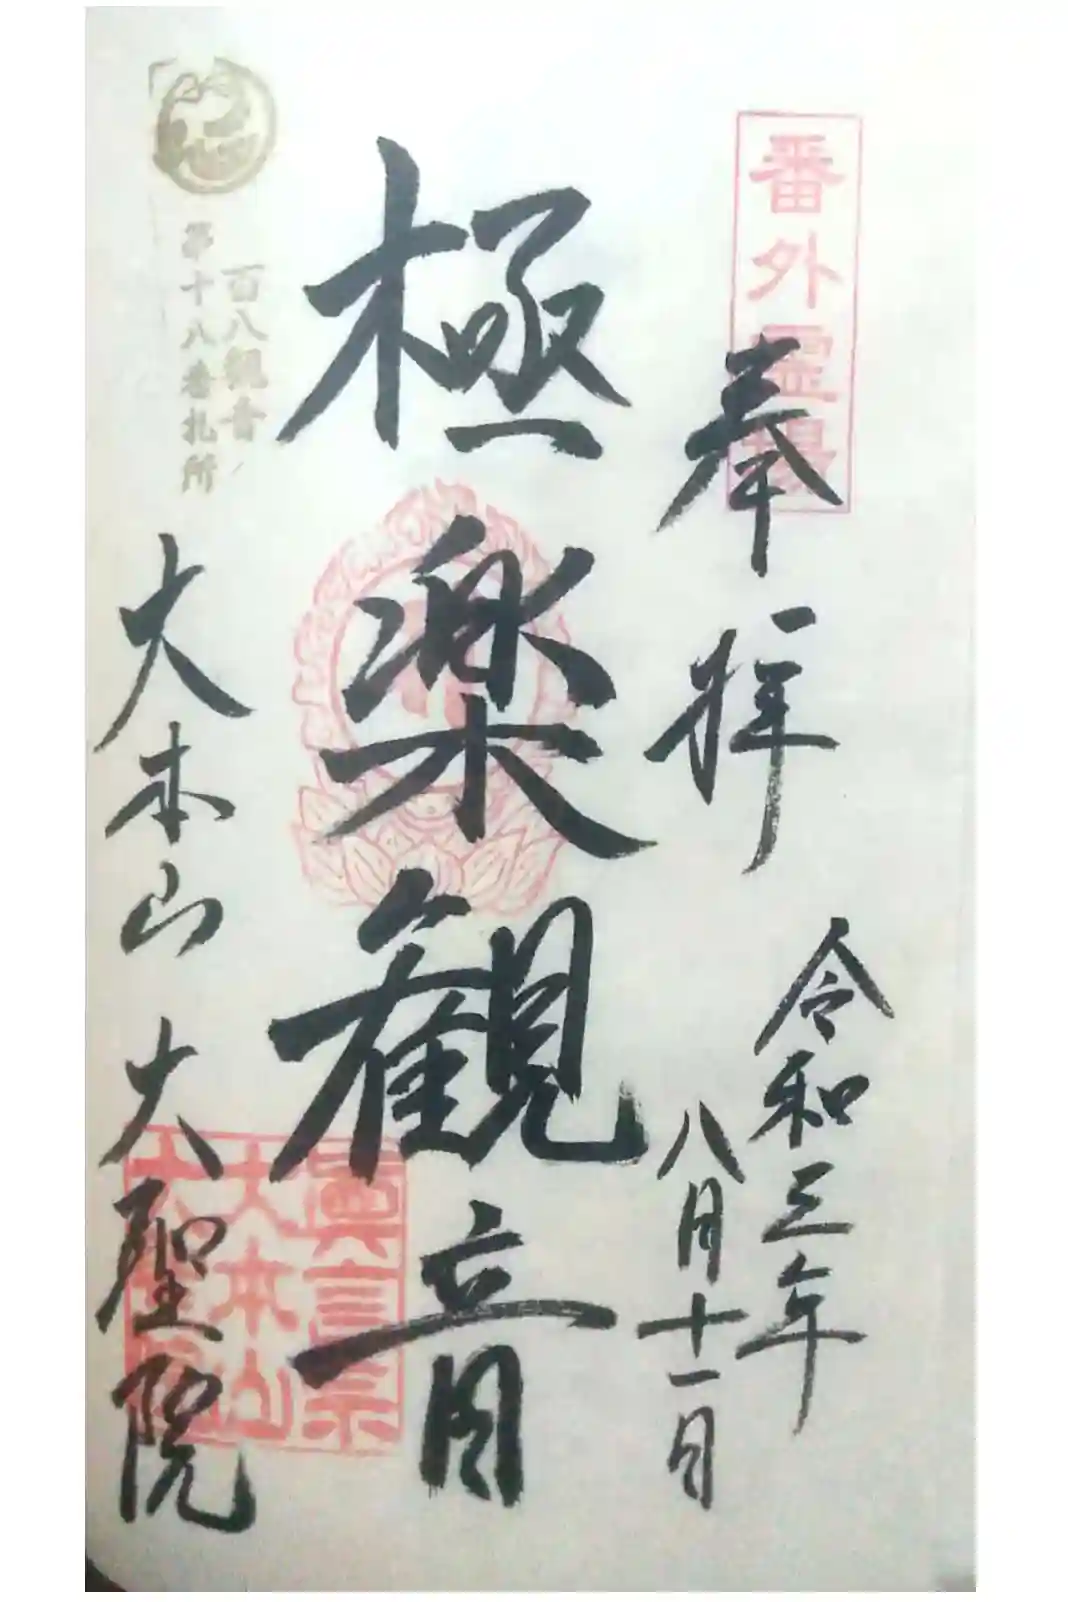 番外霊場
奉拝
令和三年
八月十一日
極楽観音
百八観音
第十八番札所
大本山 大聖院
真言宗
大本山
大聖院